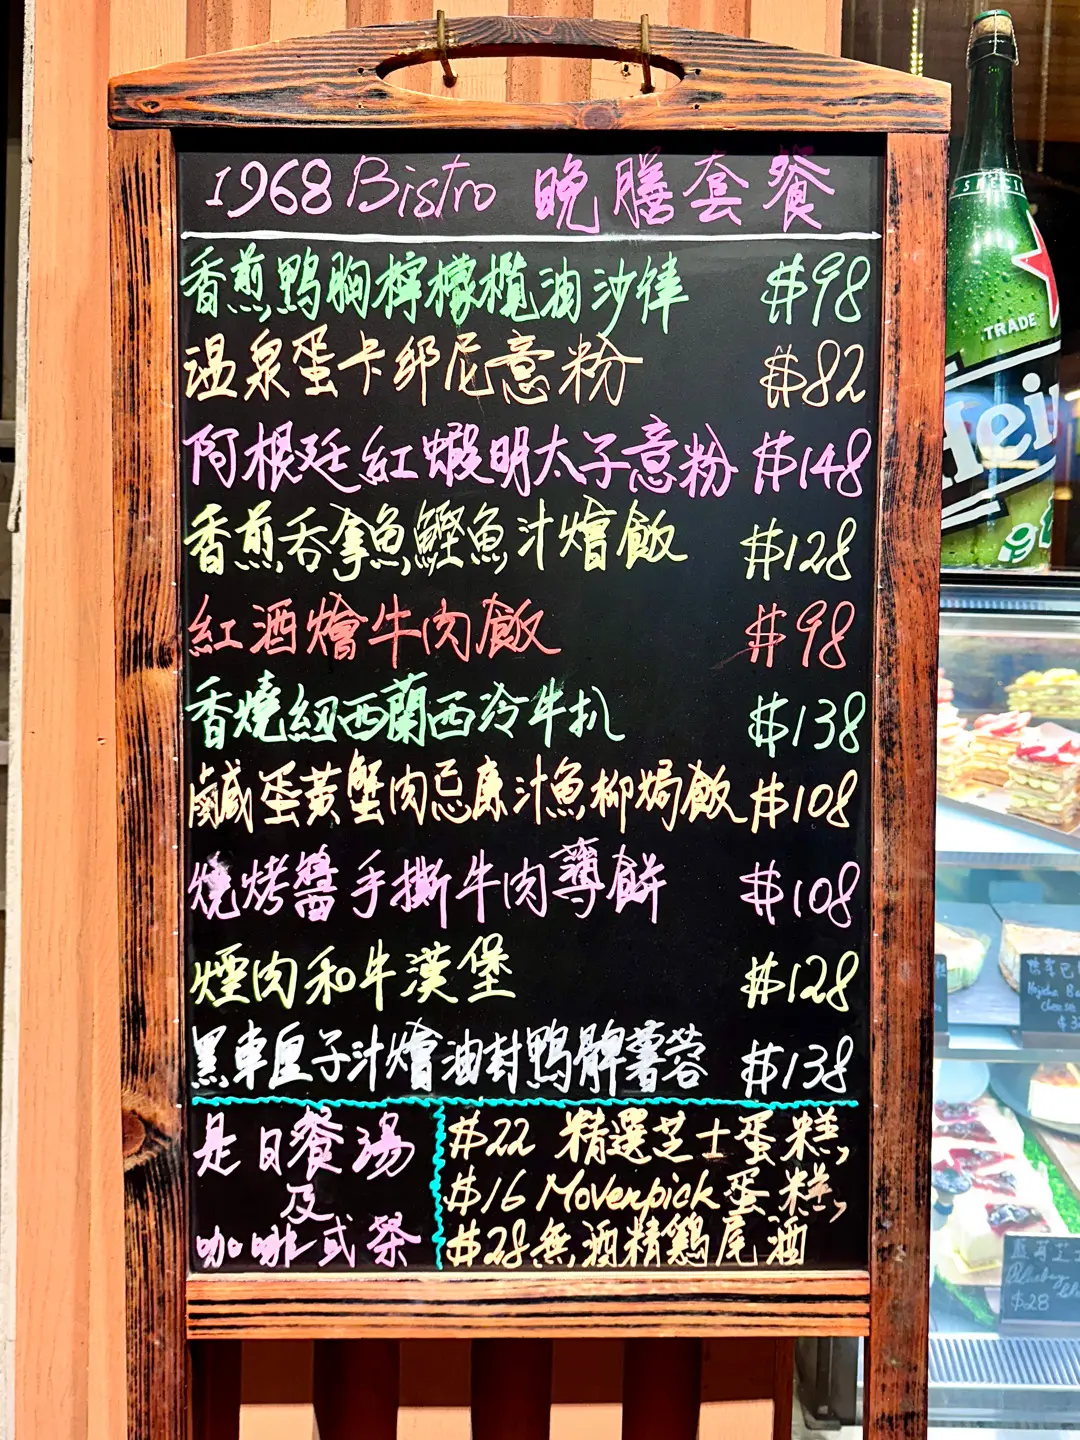 1968 Bistro 晚膳套餐
香煎鴨胸檸檬欖油沙律 $98
温泉蛋卡邦尼意粉 $82
阿根廷紅蝦明太子意粉 $148
香煎吞拿魚鰹魚汁燴飯 $128
紅酒燴牛肉飯 $98
香燒紐西蘭西冷牛扒 $138
鹹蛋黃蟹肉忌廉汁魚柳焗飯 $108
燒烤醬手撕牛肉薄餅 $108
煙肉和牛漢堡 $128
黑車厘子汁燴油封鴨髀薯蓉 $138
是日餐湯
及
咖啡或茶
$22 精選芝士蛋糕,
$16 Movenpick蛋糕,
$28無酒精鷄尾酒
SPECI
TRADE
Hei
Hojicha Ba
Cheese
Blueberry
$28